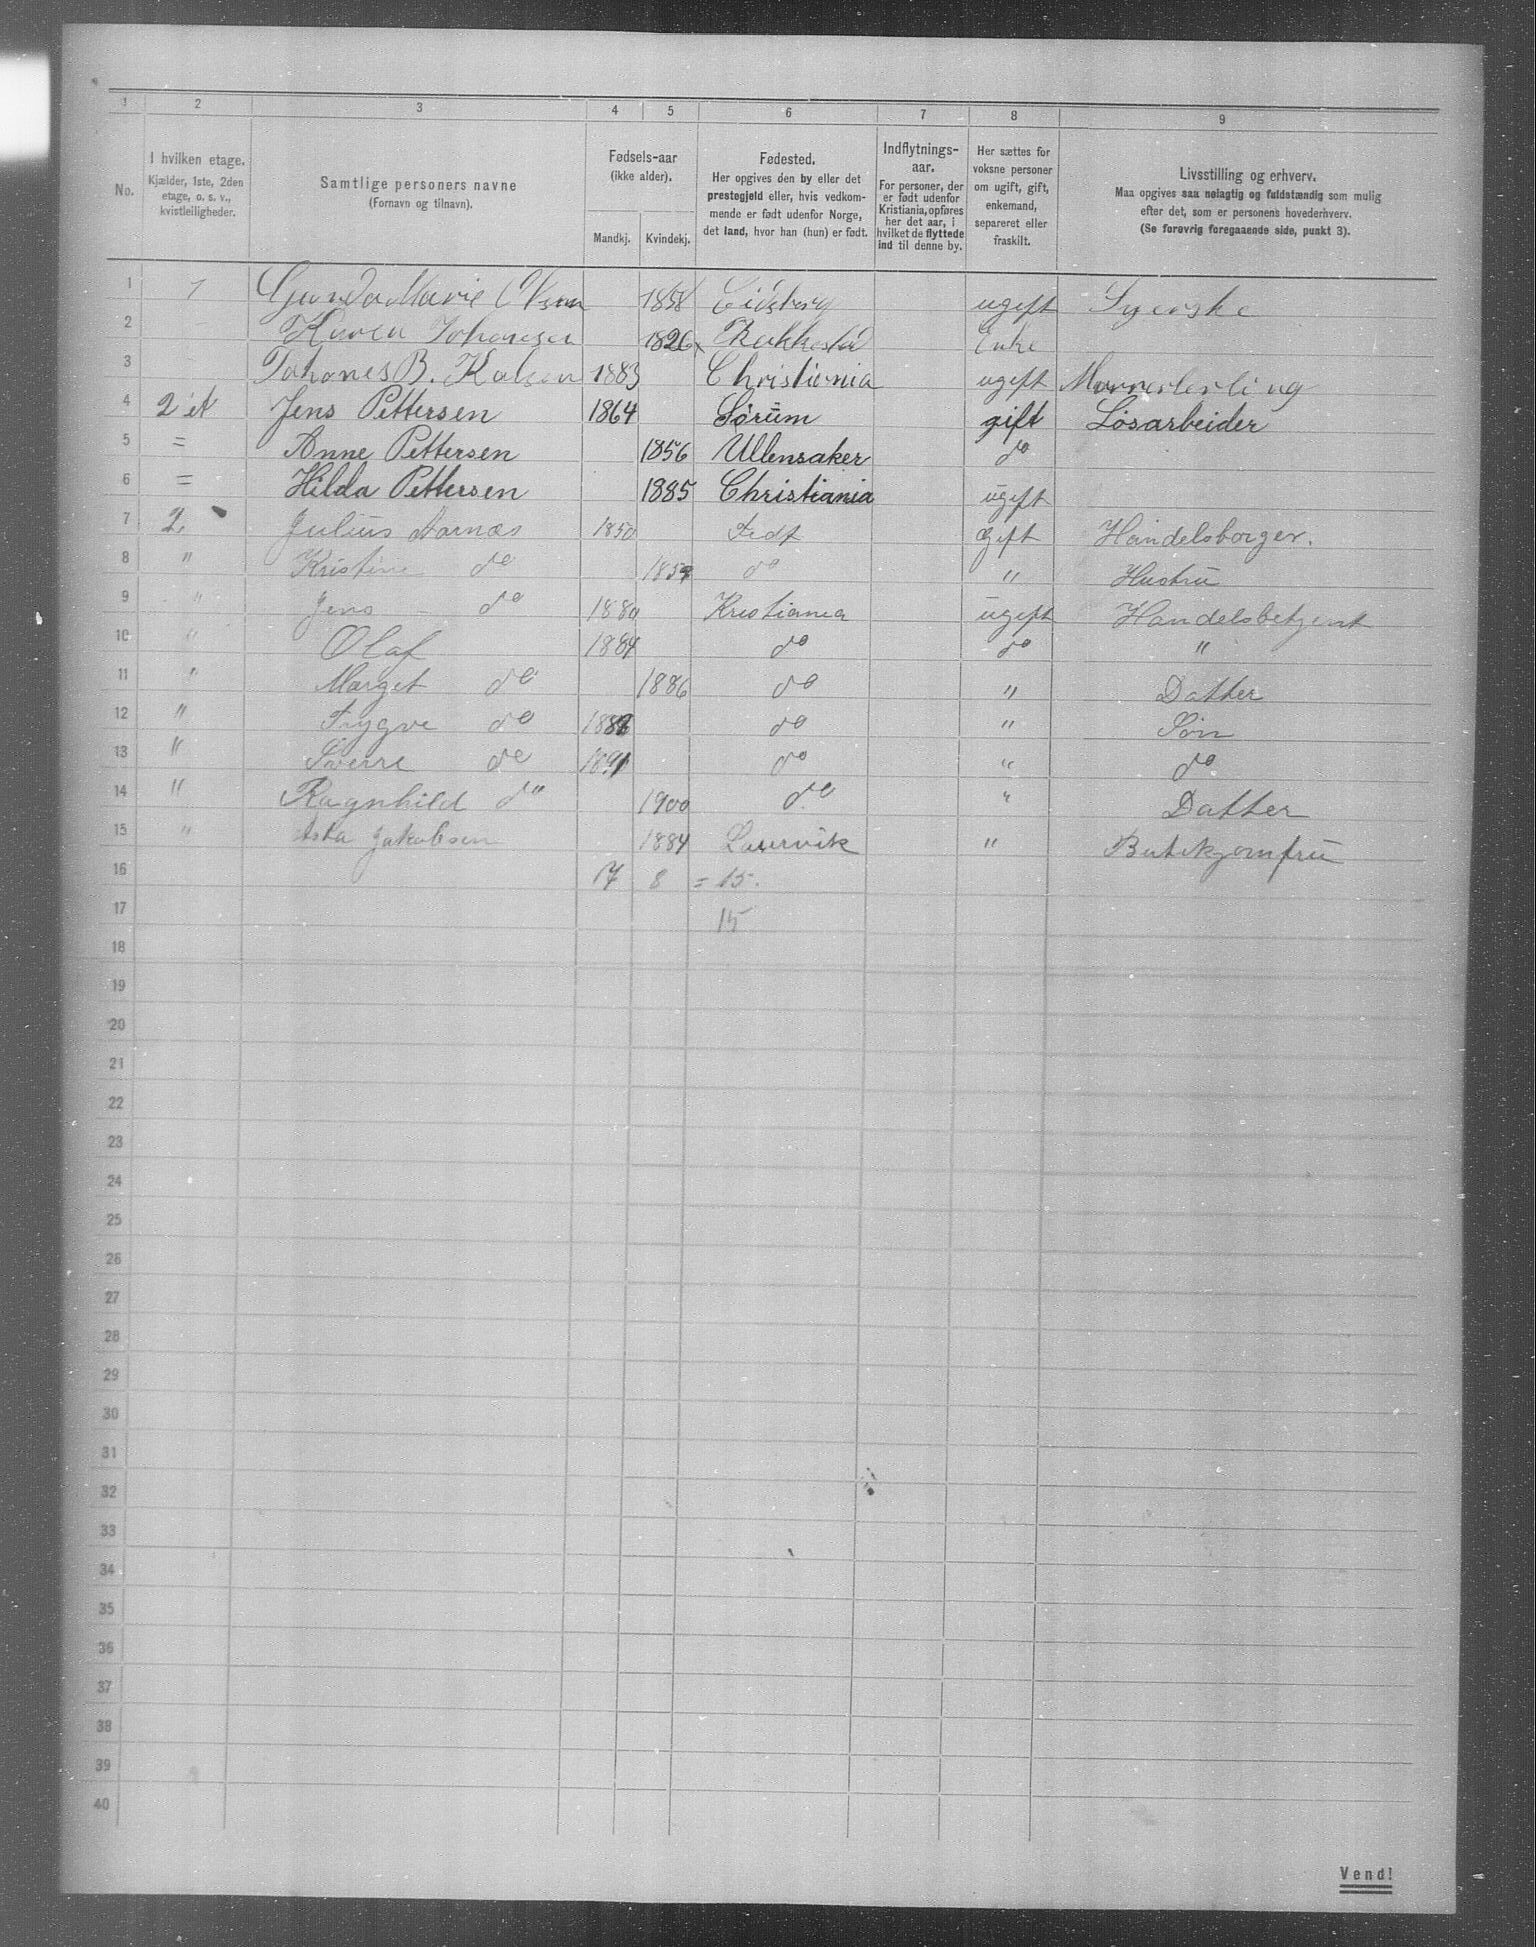 1 2 3 4 5 6 7 8 9
No.
I hvilken etage.
Kjælder, 1ste, 2den
etage, o. s. v.,
kvistleiligheder.
Samtlige personers navne
(Fornavn og tilnavn).
Fødsels-aar
(ikke alder).
Mandkj. Kvindekj.
Fødested.
Her opgives den by eller det
prestegjeld eller, hvis vedkom-
mende er født udenfor Norge,
det land, hvor han (hun) er født.
Indflytnings-
aar.
For personer, der
er født udenfor
Kristiania, opføres
her det aar, i
hvilket de flyttede
ind til denne by.
Her sættes for
voksne personer
om ugift, gift,
enkemand,
separeret eller
fraskilt.
Livsstilling og erhverv.
Maa opgives saa nøiagtig og fuldstændig som mulig
efter det, som er personens hovederhverv.
(Se forøvrig foregaaende side, punkt 3).
1 1 Gunda Marie Olsen 1858 Eidsberg ugift Syerske
2 Karen Johansen 1826 Rakkestad Enke
3 Johanes B. Kalsen 1883 Christiania ugift
4 2 et Jens Pettersen 1864 Sørum gift Løsarbeider
5 = Anne Pettersen 1856 Ullensaker do
6 = Hilda Pettersen 1885 Christiania ugift
7 2. Julius Aarnæs 1850 gift Handelsborger.
8 " Kristine do do " Hustru
9 " Jens do 1880 Kristiania ugift Handelsbetjent
10 " Olaf 1884 do do "
11 " Marget do 1886 do " Datter
12 " Trygve do do " Søn
13 " Sverre do 1891 do " do
14 " Ragnhild do 1900 do " Datter
15 " Asta Jakobsen 1884 Laurvik " Butikjomfru
16 7 8 = 15.
17 15
18
19
20
21
22
23
24
25
26
27
28
29
30
31
32
33
34
35
36
37
38
39
40
Vend!